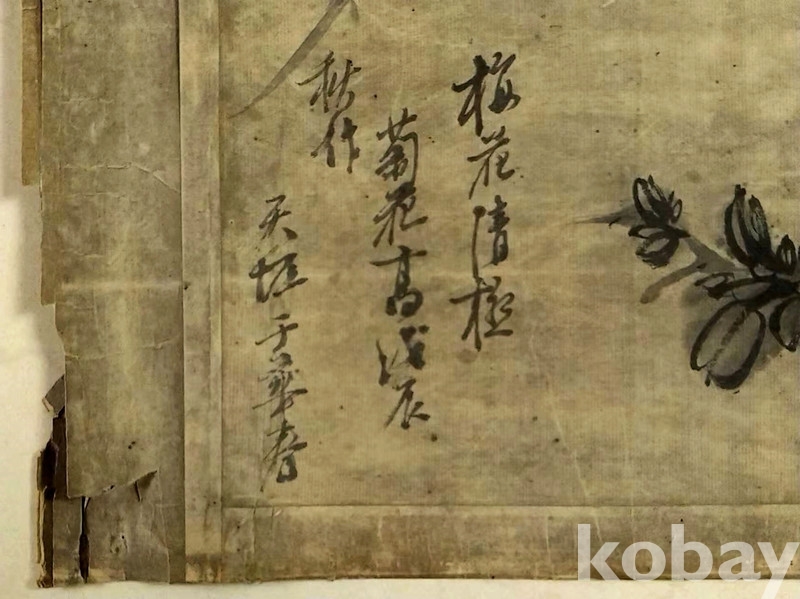 梅花清極
菊花高戊辰
秋作
天垣于華春
kobay